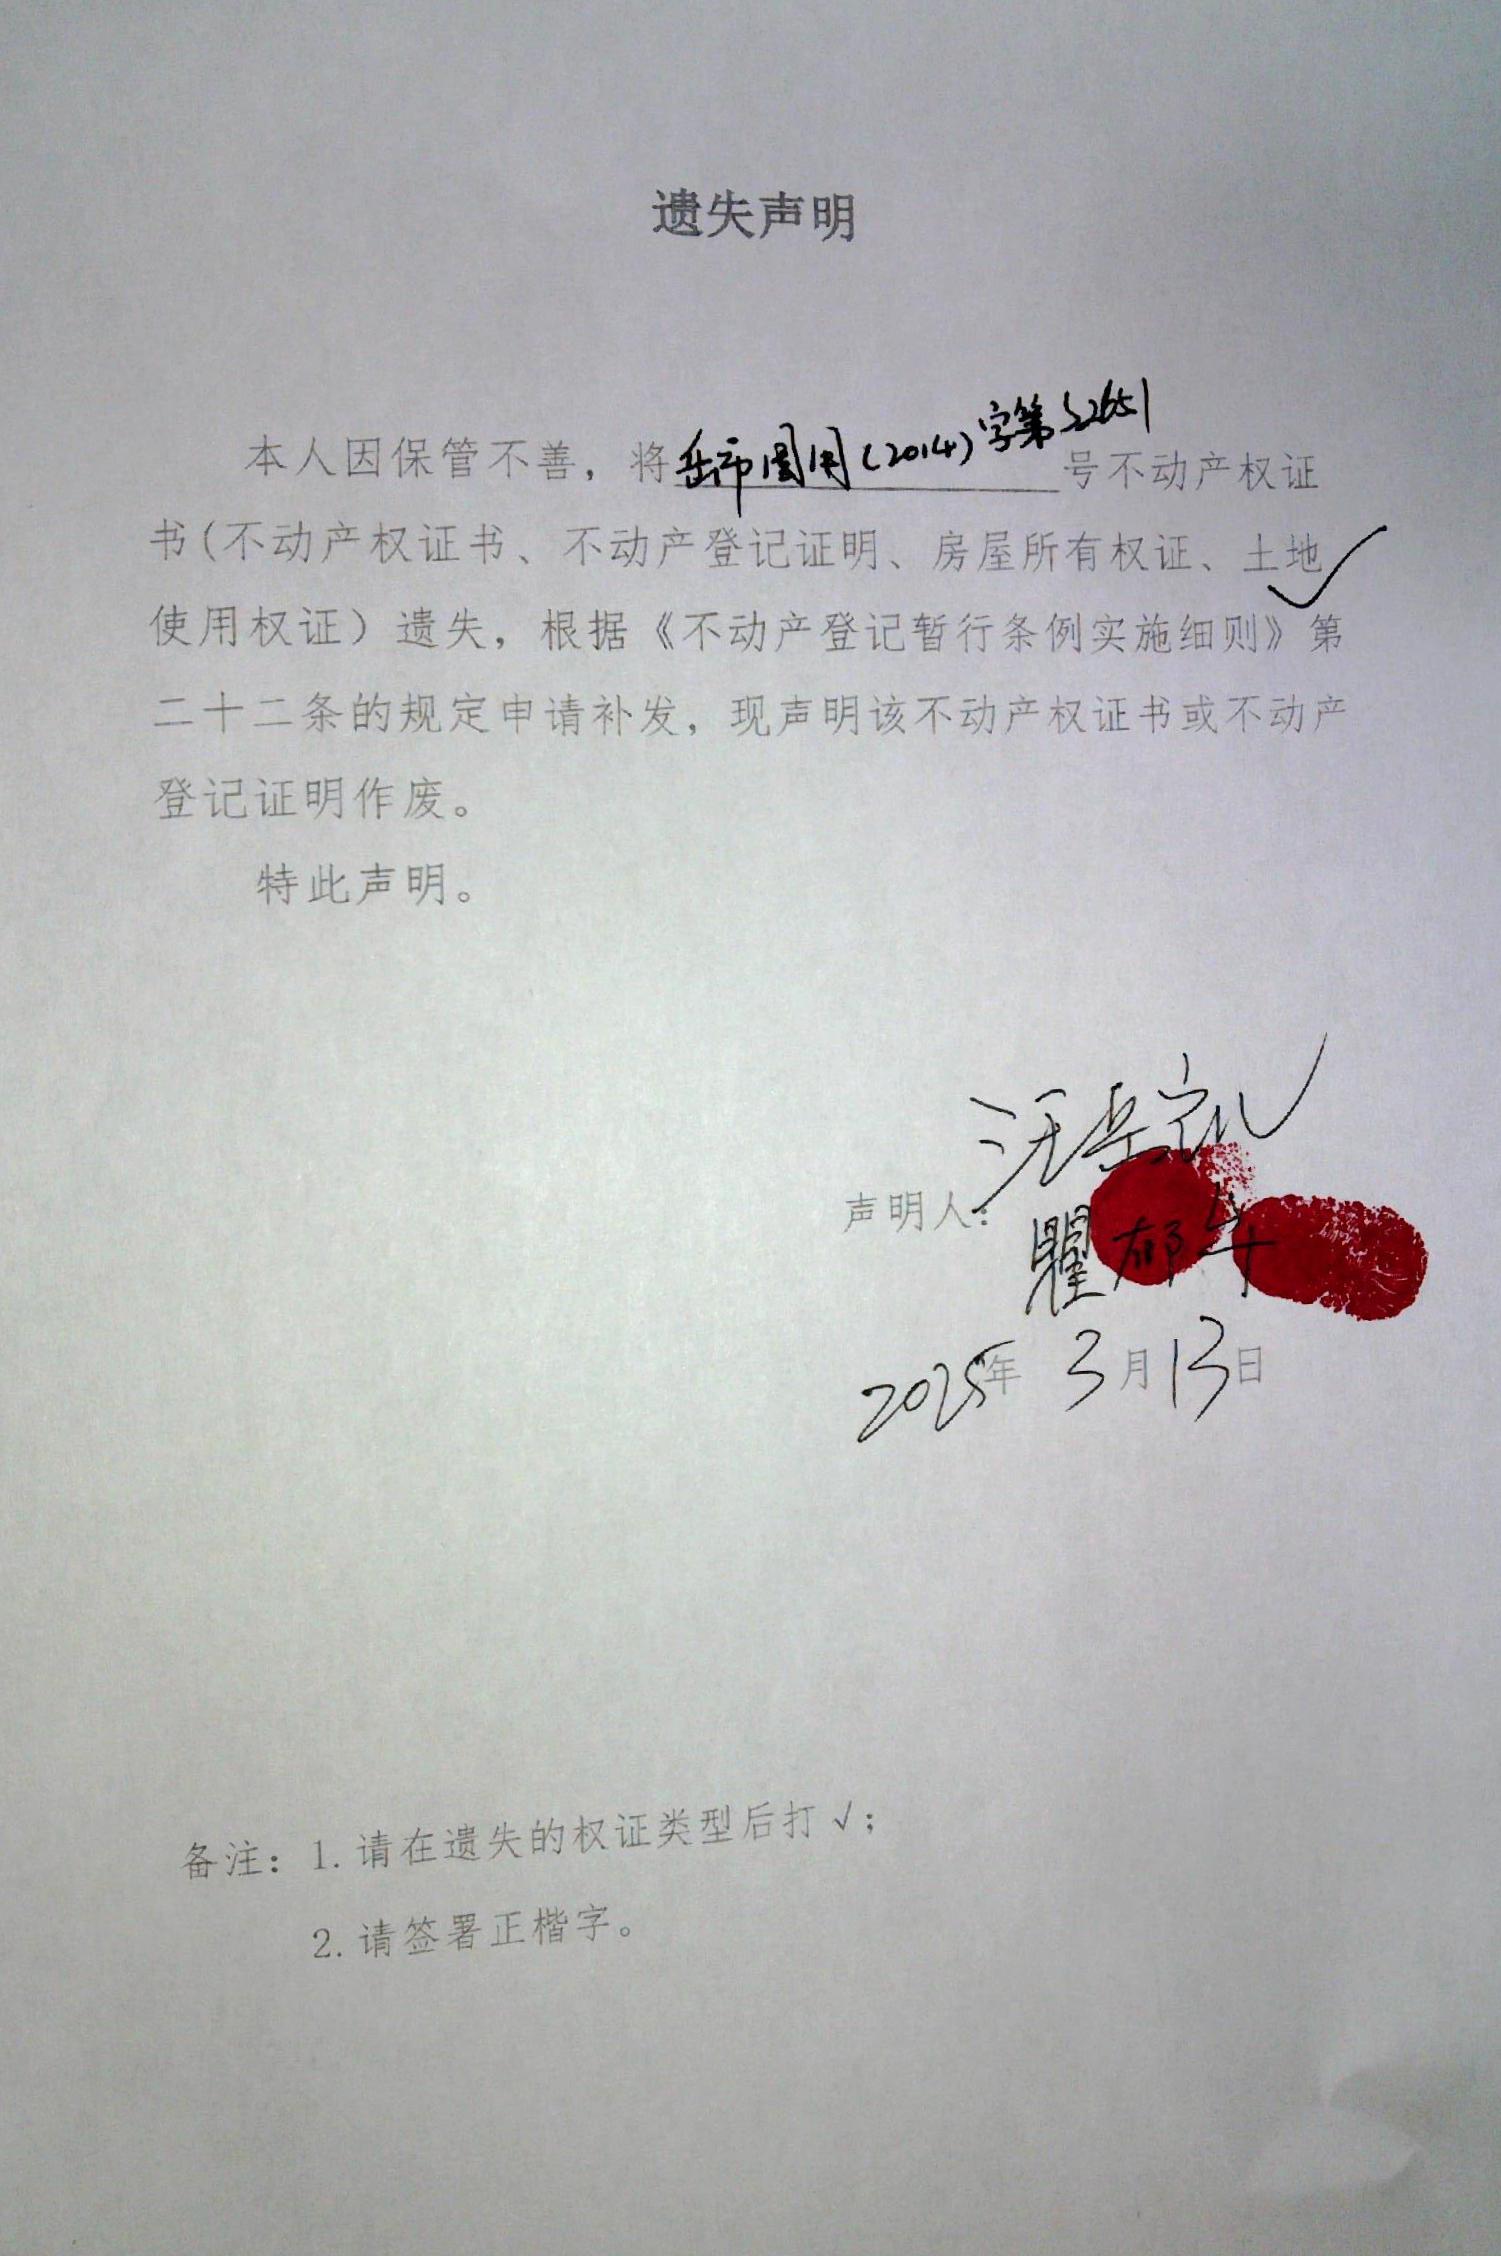 遗失声明
本人因保管不善，将岳市国用(2014)字第S2651号不动产权证
书(不动产权证书、不动产登记证明、房屋所有权证、土地✓
使用权证）遗失，根据《不动产登记暂行条例实施细则》第
二十二条的规定申请补发，现声明该不动产权证书或不动产
登记证明作废。
特此声明。
汪岳
声明人：
瞿郁华
2025年 3月13日
备注：1.请在遗失的权证类型后打√；
2.请签署正楷字。